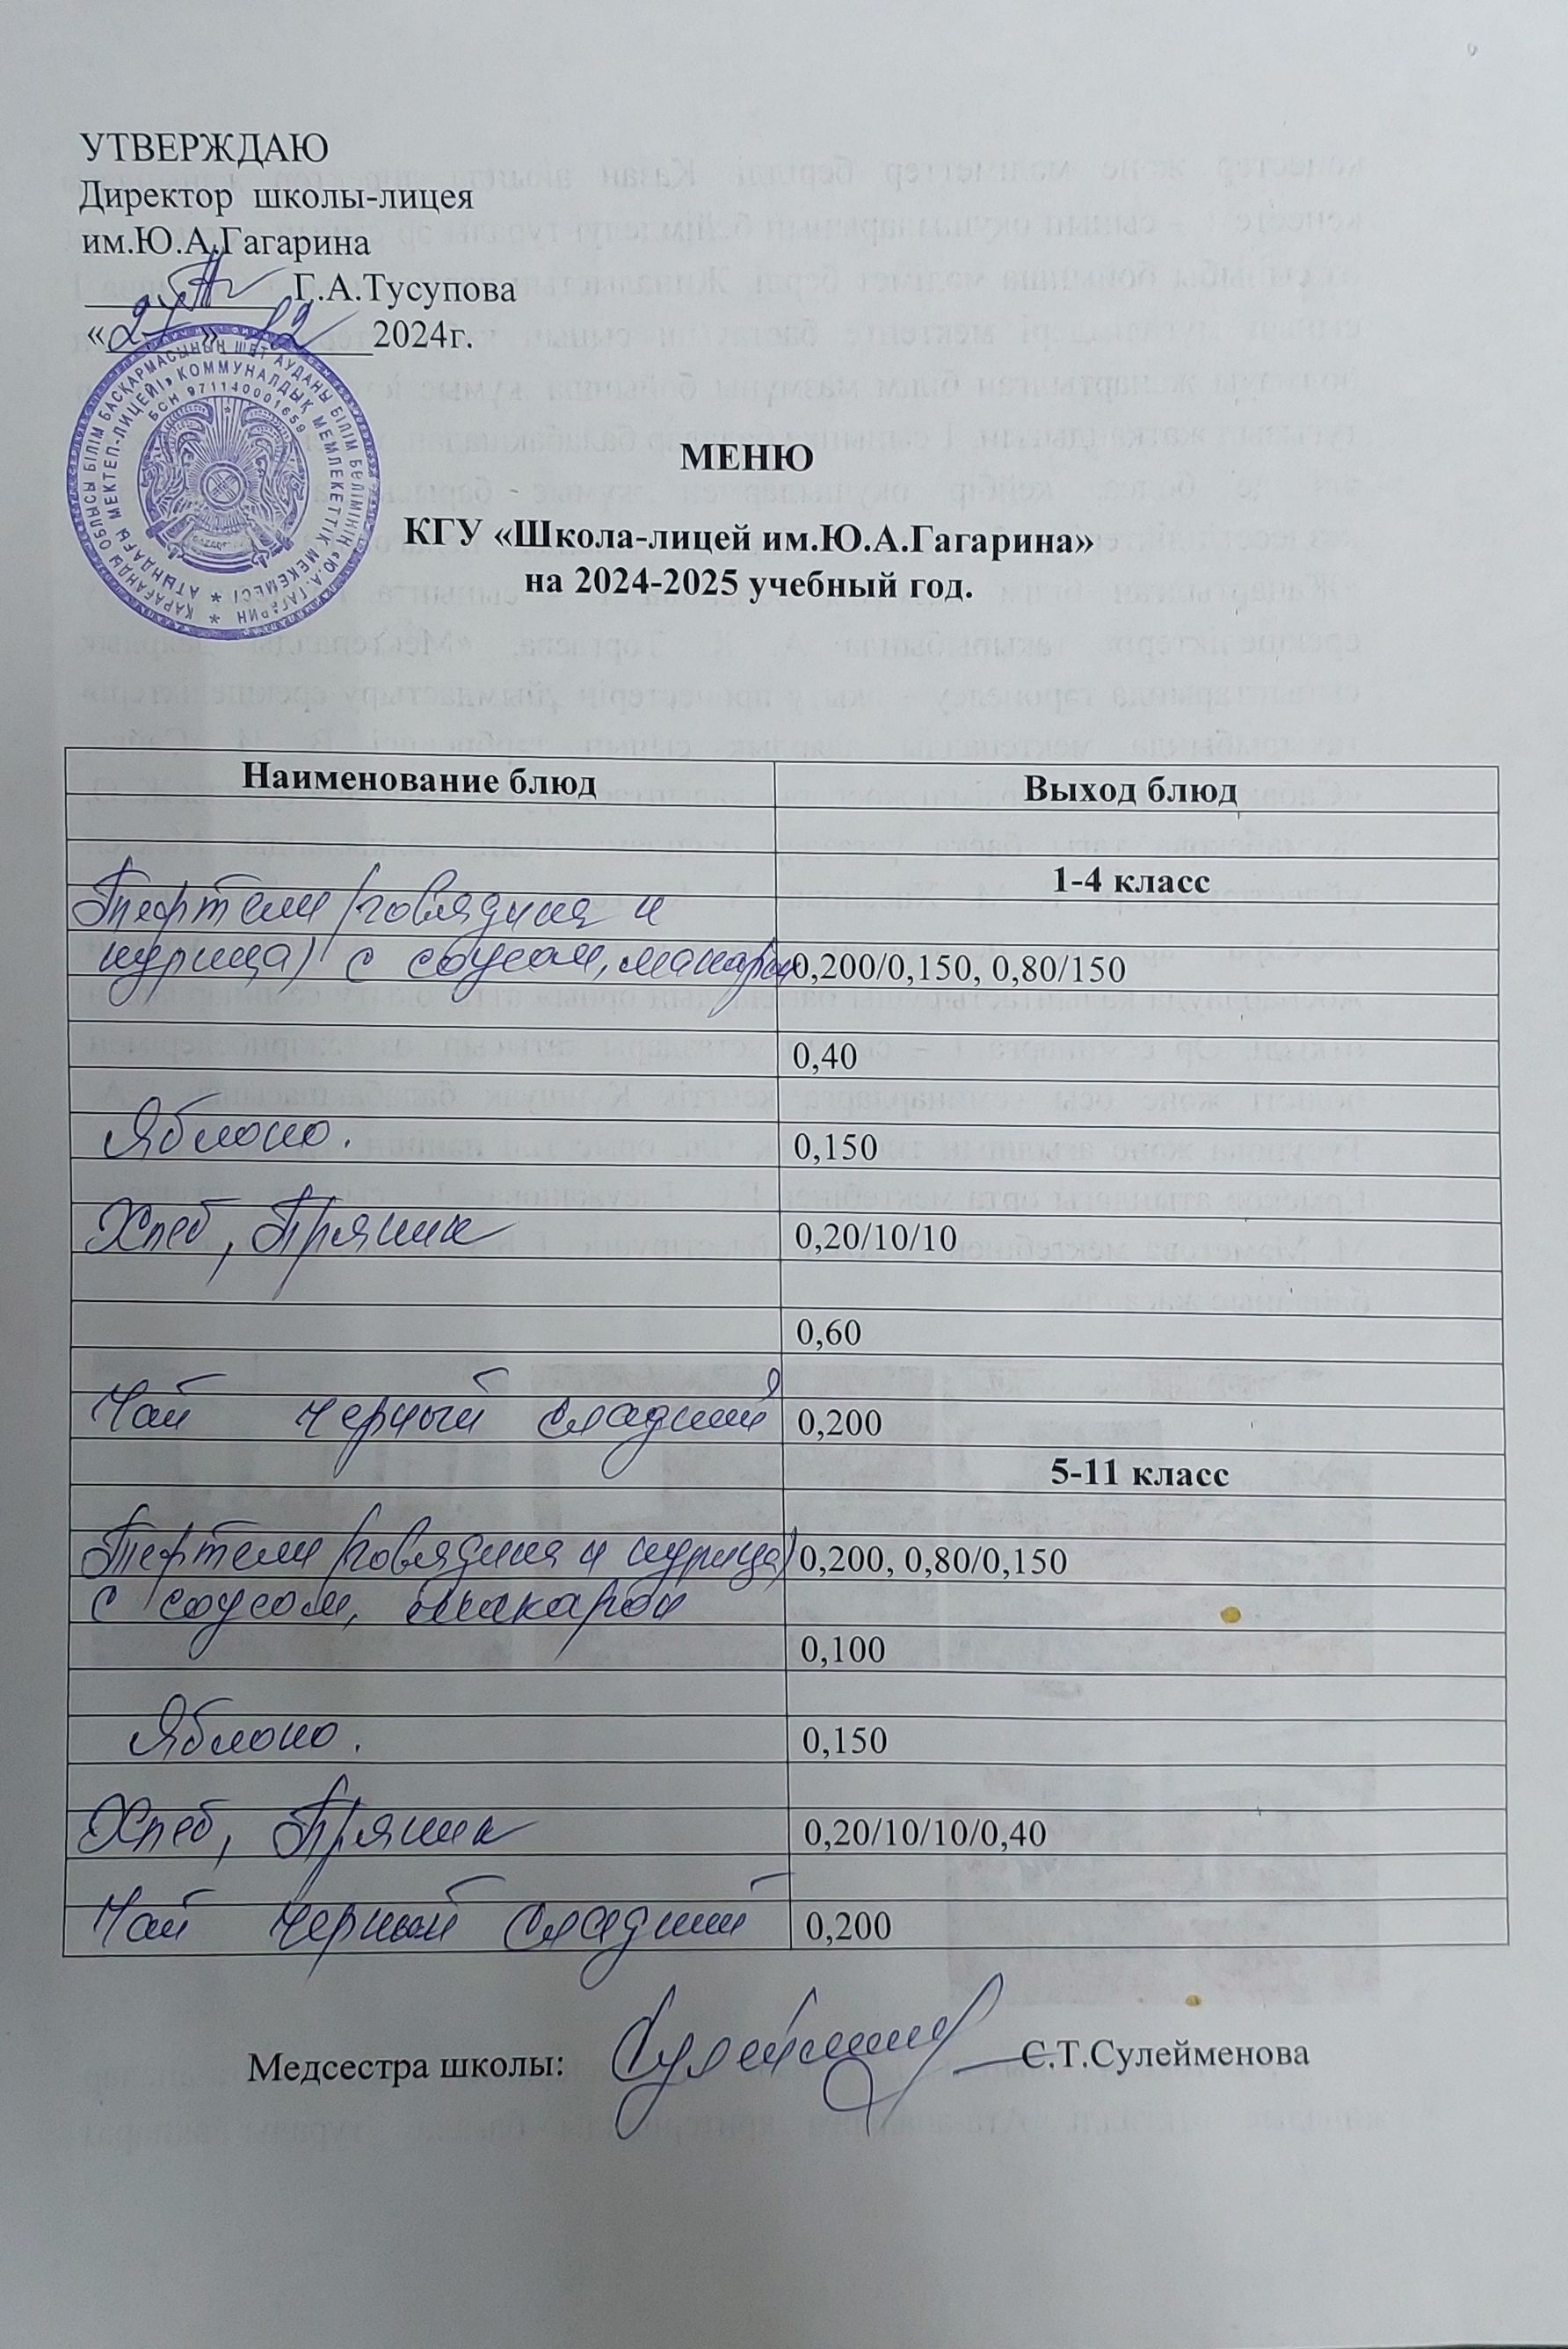 УТВЕРЖДАЮ
Директор школы-лицея
им.Ю.А.Гагарина
Г.А.Тусупова
« » 12 2024г.
ҚАРАҒАНДЫ ОБЛЫСЫ БІЛІМ БАСҚАРМАСЫНЫҢ ШЕТ АУДАНЫ БІЛІМ БӨЛІМІНІҢ «Ю.А.ГАГАРИН
АТЫНДАҒЫ МЕКТЕП-ЛИЦЕЙІ» КОММУНАЛДЫҚ МЕМЛЕКЕТТІК МЕКЕМЕСІ
БСН 971140001659
МЕНЮ
КГУ «Школа-лицей им.Ю.А.Гагарина»
на 2024-2025 учебный год.
Наименование блюд Выход блюд
1-4 класс
Тефтели (говядина и
курица) с соусом, макарон 0,200/0,150, 0,80/150
0,40
Яблоко. 0,150
Хлеб, Пряник 0,20/10/10
0,60
Чай черный сладкий 0,200
5-11 класс
Тефтели (говядина и курица) 0,200, 0,80/0,150
с соусом, макарон
0,100
Яблоко. 0,150
Хлеб, Пряник 0,20/10/10/0,40
Чай черный сладкий 0,200
Медсестра школы: С.Т.Сулейменова